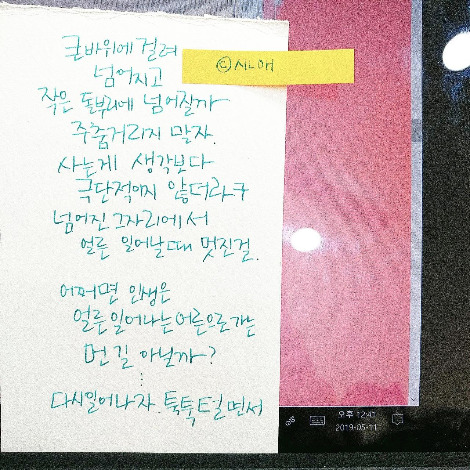 큰바위에 걸려
넘어지고
작은 돌부리에 넘어질까
주춤거리지 말자.
사는게 생각보다
극단적이지 않더라구
넘어진 그자리에서
얼른 일어날때 멋진걸.
어쩌면 인생은
얼른일어나는어른으로가는
먼 길 아닐까?
⋮
다시일어나자. 툭툭털면서
ⓒ시나애
오후 12:41
2019-05-11